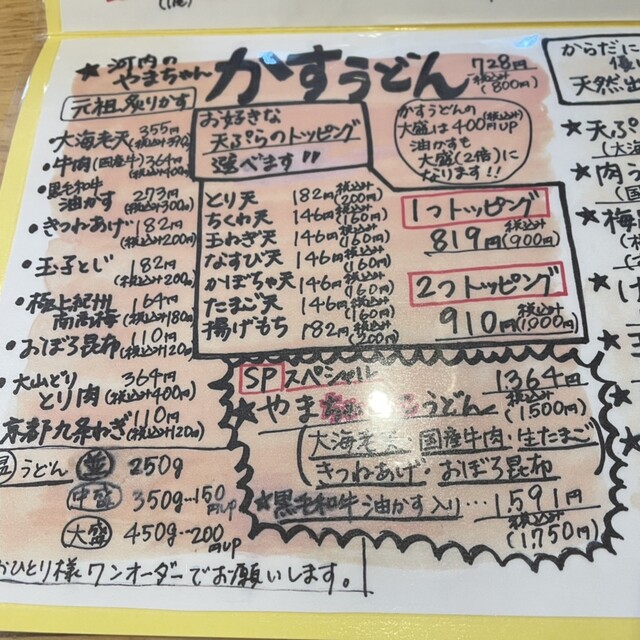 ★河内の
やまちゃん
かすうどん
728円
税込み
(800円)
元祖炙りかす
大海老天 355円
(税込み390)
・牛肉(国産牛)364円
(税込み400
・黒毛和牛
油かす 273円
(税込み300円)
・きつねあげ 182円
(税込み200円)
・玉子とじ 182円
(税込み200円
・極上紀州
南高梅 164円
(税込み180円
・おぼろ昆布 110円
(税込み120円
・大山どり
とり肉 364円
(税込み400円)
京都九条ねぎ 110円
(税込み120円)
うどん 並 250g
中盛 350g…150円UP
大盛 450g…200円UP
おひとり様ワンオーダーでお願いします。
お好きな
天ぷらのトッピング
選べます!!
かすうどんの
大盛は400円(税込み)UP
油かすも
大盛(2倍)に
なります!!
とり天 182円 税込み(200円)
ちくわ天 146円 税込み(160円)
玉ねぎ天 146円 税込み(160円)
なすび天 146円 税込み(160円)
かぼちゃ天 146円 税込み(160円)
たまご天 146円 税込み(160円)
揚げもち 182円 税込み(200円)
1つトッピング
819円 税込み(900円)
2つトッピング
910円 税込み(1,000円)
SPスペシャル
★やまちゃんうどん
1364円
税込み
(1,500円)
(大海老天・国産牛肉・生たまご
きつねあげ・おぼろ昆布)
★黒毛和牛油かす入り…1,591円
税込み
(1,750円)
からだに
優
天然出
★天ぷ
(大海
★肉う
(国
★梅